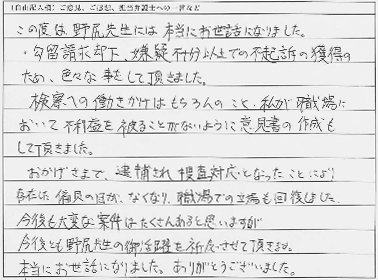 (自由記入欄)ご意見、ご感想、担当弁護士への一言など
この度は、野尻先生には本当にお世話になりました。
・勾留請求却下、嫌疑不十分以上での不起訴の獲得の
ため、色々な事をして頂きました。
検察への働きかけはもちろんのこと、私が職場に
おいて不利益を被ることがないように意見書の作成も
して頂きました。
おかげさまで、逮捕され捜査対応となったことにより
存在した偏見のほか、なくなり、職場での立場も回復しました。
今後も大変な案件はたくさんあると思いますが
今後とも野尻先生の御活躍を祈念させて頂きます。
本当にお世話になりました。ありがとうございました。